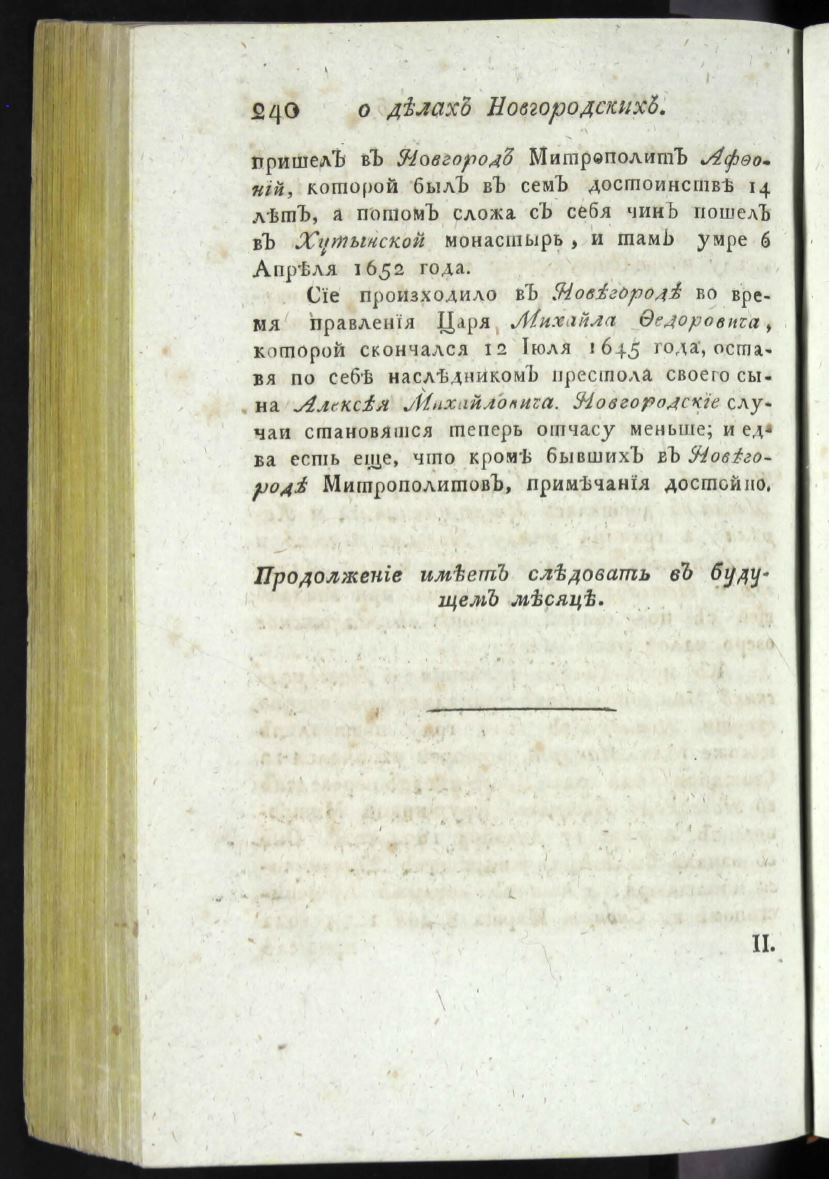 240 о дѣлахъ Новгородскихъ.
пришелъ въ Новгородъ Митрополитъ Афѳо-
ній, которой былъ въ семъ достоинствѣ 14
лѣтъ, а потомъ сложа съ себя чинъ пошелъ
въ Хутынской монастырь, и тамъ умре 6
Апрѣля 1652 года.
Сіе произходило въ Новѣгородѣ во вре-
мя правленія Царя Михайла Ѳедоровича,
которой скончался 12 Іюля 1645 года, оста-
вя по себѣ наслѣдникомъ престола своего сы-
на Алексѣя Михайловича. Новгородскіе слу-
чаи становятся теперь отчасу меньше; и ед-
ва есть еще, что кромѣ бывшихъ въ Новѣго-
родѣ Митрополитовъ, примѣчанія достойно.
Продолженіе имѣетъ слѣдовать въ буду-
щемъ мѣсяцѣ.
II.